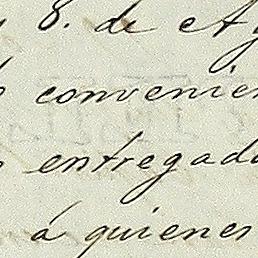 8. de Ag
convenien
entregado
á quienes